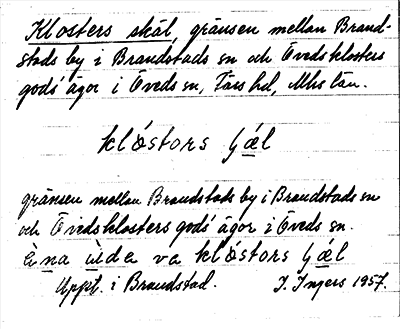 Klosters skäl, gränsen mellan Brand-
stads by i Brandstads sn och Övedsklosters
gods' ägor i Öveds sn, Färs hd, Mhs län.
klóstors ʃǽl
gränsen mellan Brandstads by i Brandstads sn
och Övedsklosters gods' ägor i Öveds sn.
èna ùida va klóstors ʃǽl
Uppt. i Brandstad. I. Ingers 1957.